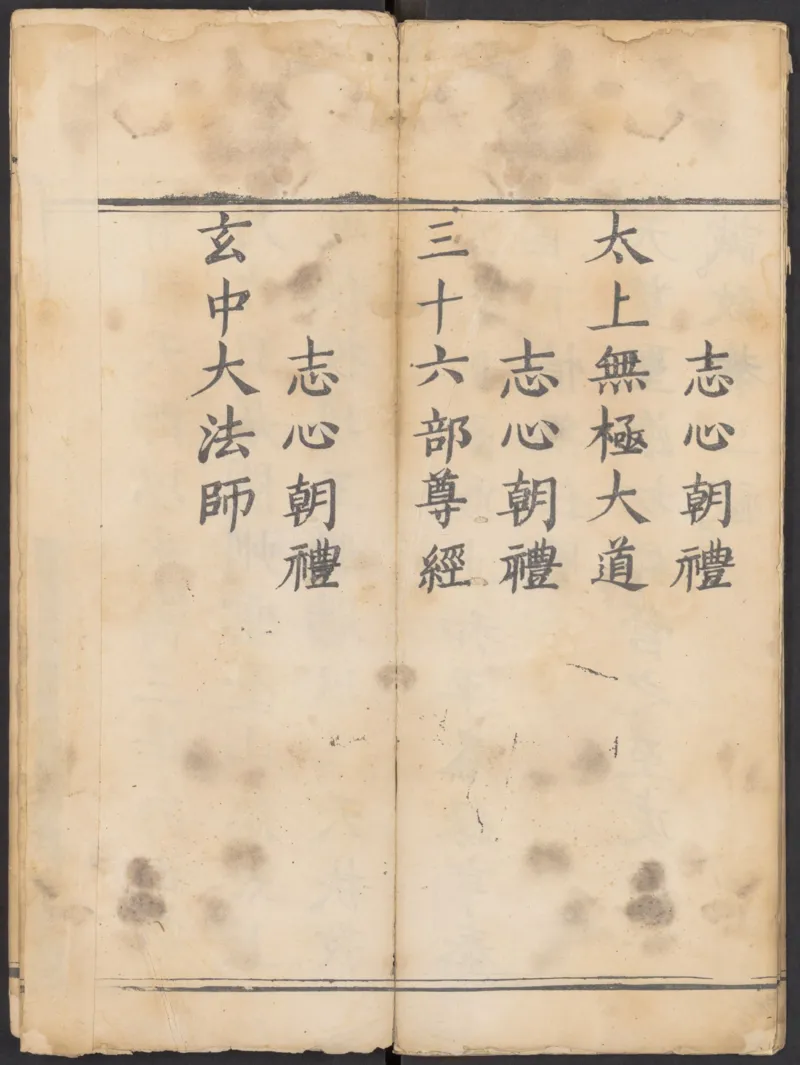 志心朝禮
太上無極大道
志心朝禮
三十六部尊經
志心朝禮
玄中大法師